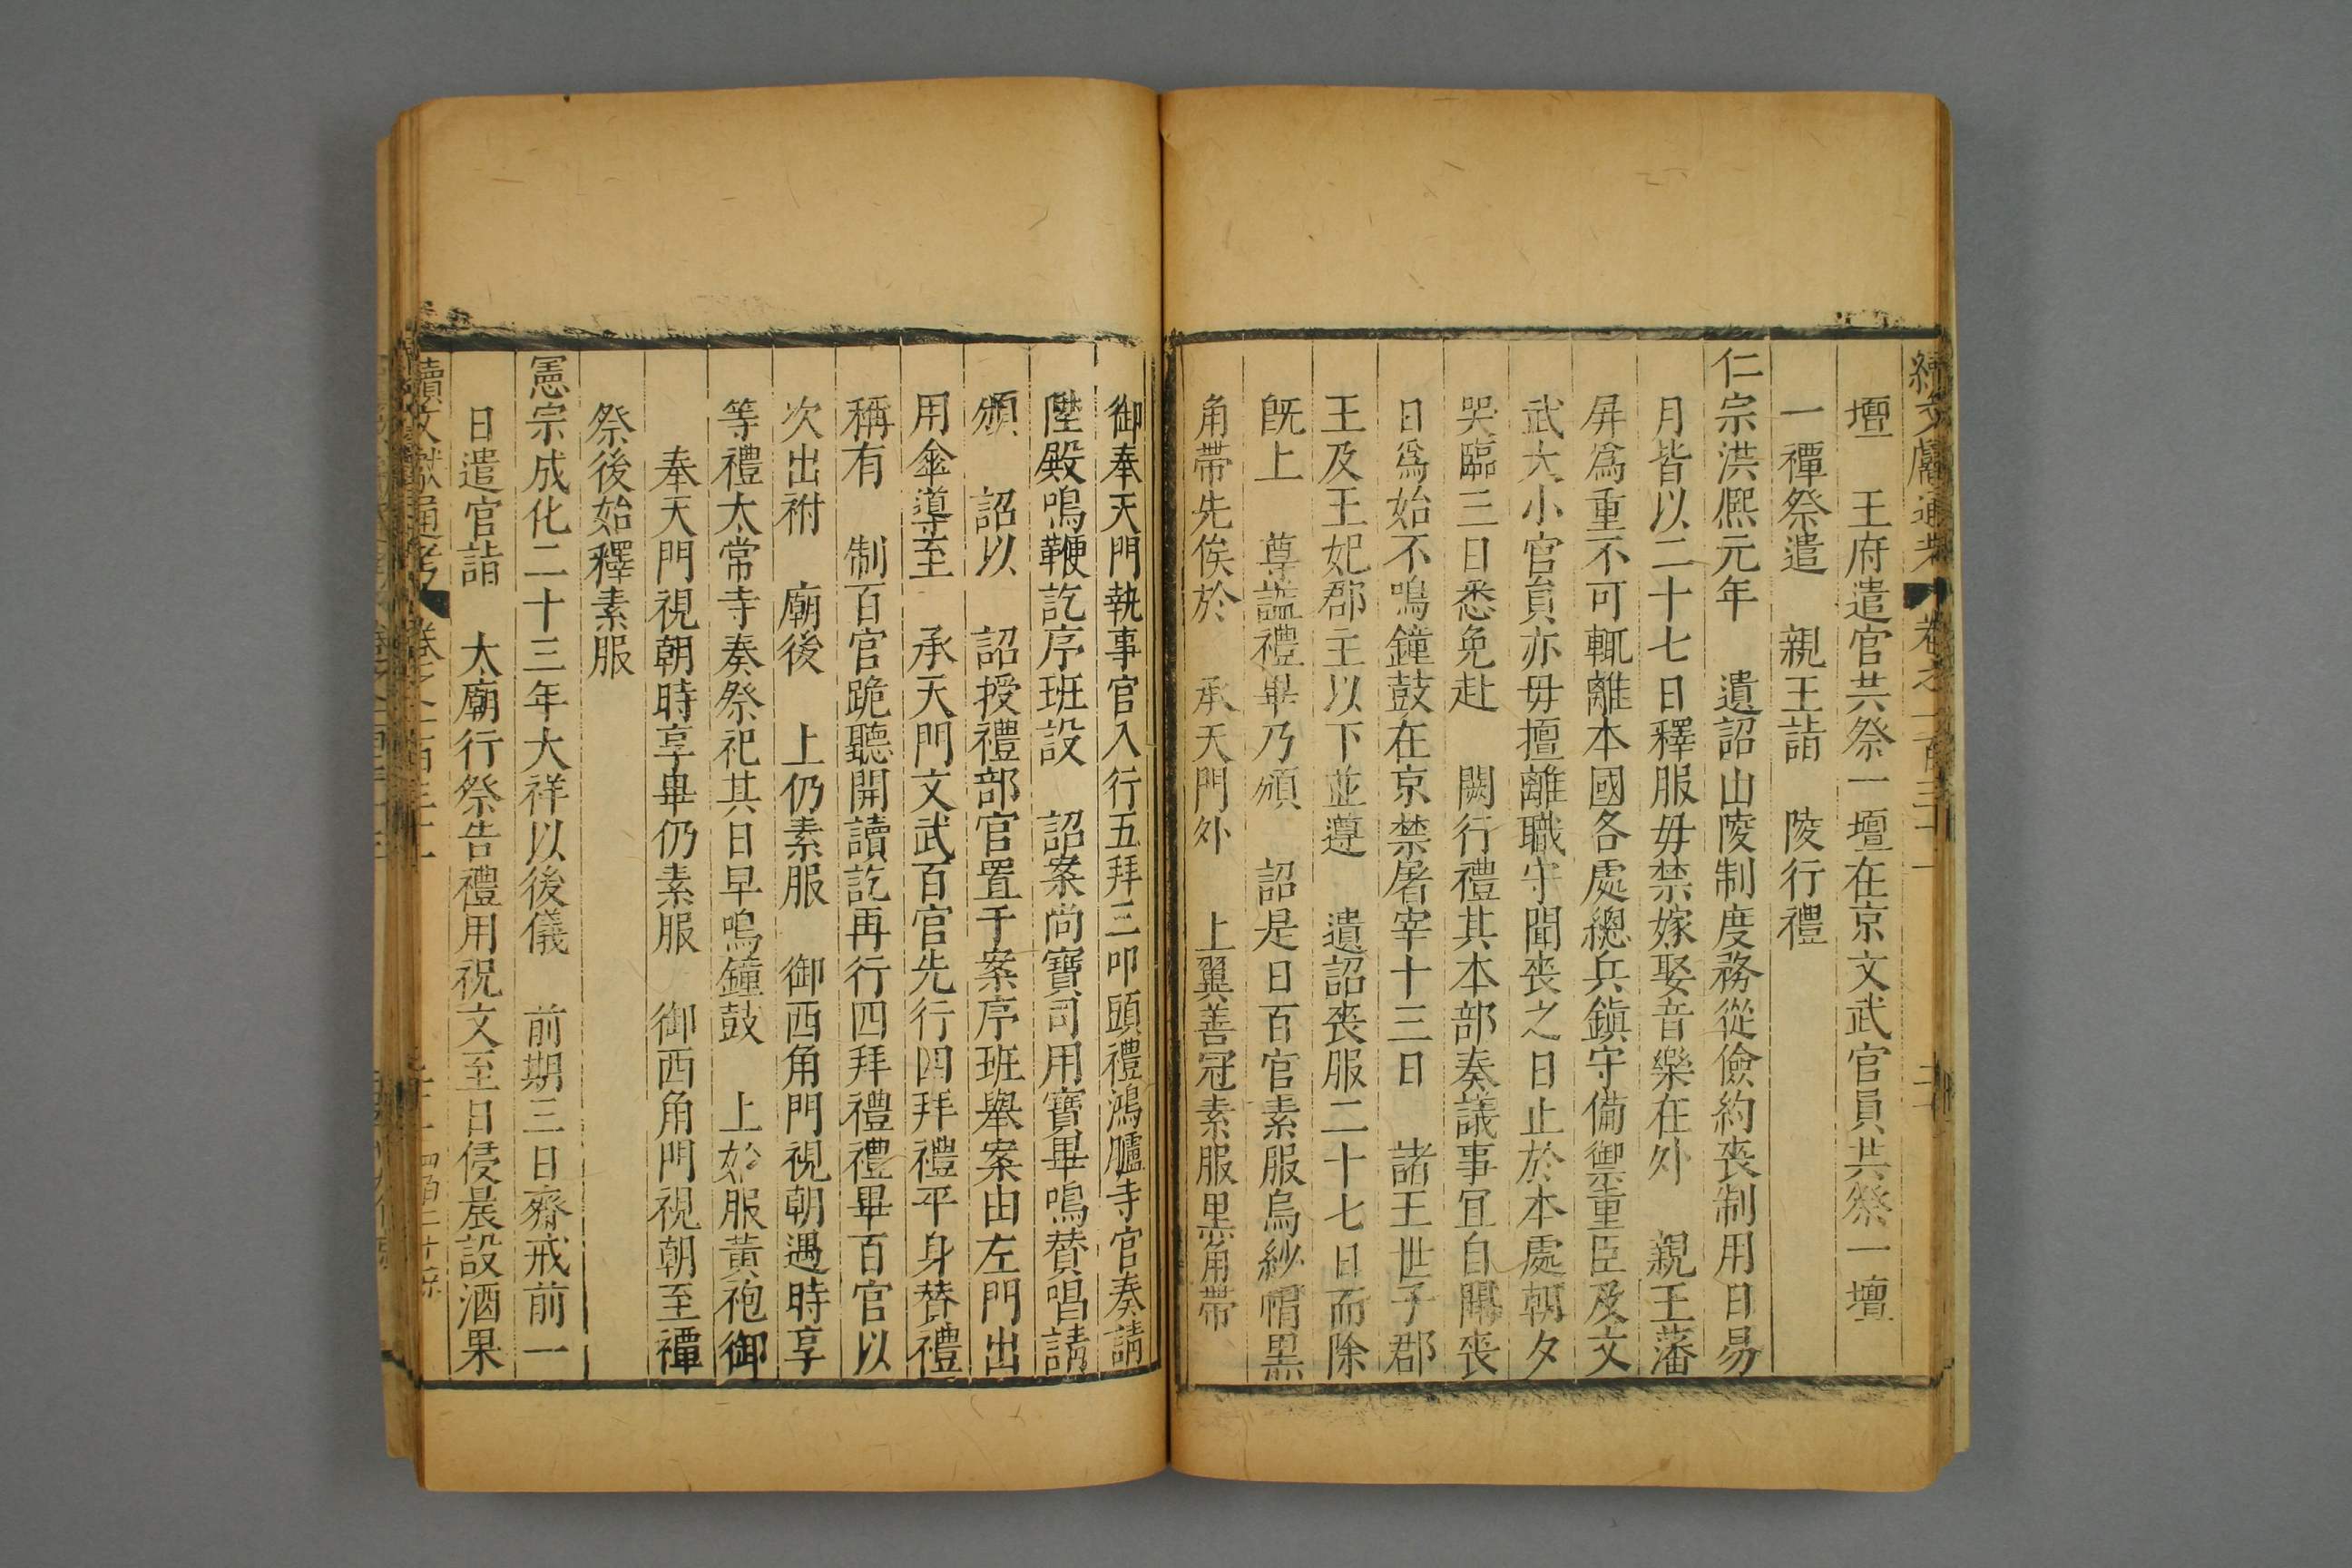 續文獻通考 卷之一百三十二
壇　王府遣官共祭一壇在京文武官員共祭一壇
一禫祭遣　親王詣　陵行禮
仁宗洪熙元年　遺詔山陵制度務從儉約喪制用日易
月皆以二十七日釋服毋禁嫁娶音樂在外　親王藩
屏爲重不可輒離本國各處總兵鎮守備禦重臣及文
武大小官員亦毋擅離職守聞喪之日止於本處朝夕
哭臨三日悉免赴　闕行禮其本部奏議事宜自聞喪
日爲始不鳴鐘鼓在京禁屠宰十三日　諸王世子郡
王及王妃郡主以下並遵　遺詔喪服二十七日而除
旣上　尊謚禮畢乃頒　詔是日百官素服烏紗帽黑
角帶先俟於　承天門外　上翼善冠素服黑角帶
御奉天門執事官入行五拜三叩頭禮鴻臚寺官奏請
陞殿鳴鞭訖序班設　詔案尚寶司用寶畢鳴贊唱請
頒　詔以　詔授禮部官置于案序班舉案由左門出
用傘導至　承天門文武百官先行四拜禮平身贊禮
稱有　制百官跪聽開讀訖再行四拜禮禮畢百官以
次出祔　廟後　上仍素服　御西角門視朝遇時享
等禮太常寺奏祭祀其日早鳴鐘鼓　上如服黃袍御
奉天門視朝時享畢仍素服　御西角門視朝至禫
祭後始釋素服
憲宗成化二十三年大祥以後儀　前期三日齋戒前一
日遣官詣　太廟行祭告禮用祝文至日侵晨設酒果
續文獻通考